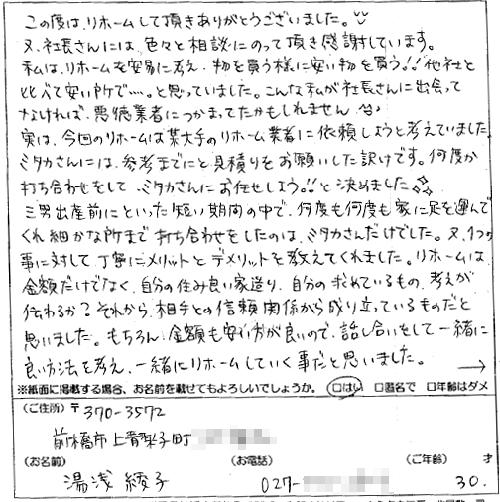 この度は、リホームして頂きありがとうございました。
又、社長さんには、色々と相談にのって頂き感謝しています。
私は、リホームを安易に考え、物を買う様に安い物を買う!! 他社と
比べて安い所で…。と思っていました。こんな私が社長さんに出会って
なければ、悪徳業者につかまってたかもしれません
実は、今回のリホームは某大手のリホーム業者に依頼しようと考えていました
ミタカさんには、参考までにと見積りをお願いした訳です。何度か
打ち合わせをして、ミタカさんにお任せしよう!! と決めました
三男出産前にといった短い期間の中で、何度も何度も家に足を運んで
くれ細かな所まで打ち合わせをしたのは、ミタカさんだけでした。又、1つの
事に対して丁寧にメリットとデメリットを教えてくれました。リホームは、
金額だけでなく、自分の住み良い家造り、自分の求めているもの、考えが
伝わるか? それから、相手との信頼関係から成り立っているものだと
思いました。もちろん、金額も安い方が良いので、話し合いをして一緒に
良い方法を考え、一緒にリホームしていく事だと思いました。 →
※紙面に掲載する場合、お名前を載せてもよろしいでしょうか。 □はい □匿名で □年齢はダメ
(ご住所) 〒370-3572
前橋市上青梨子町
(お名前) (お電話) (ご年齢) 才
湯浅 綾子 027- 30.